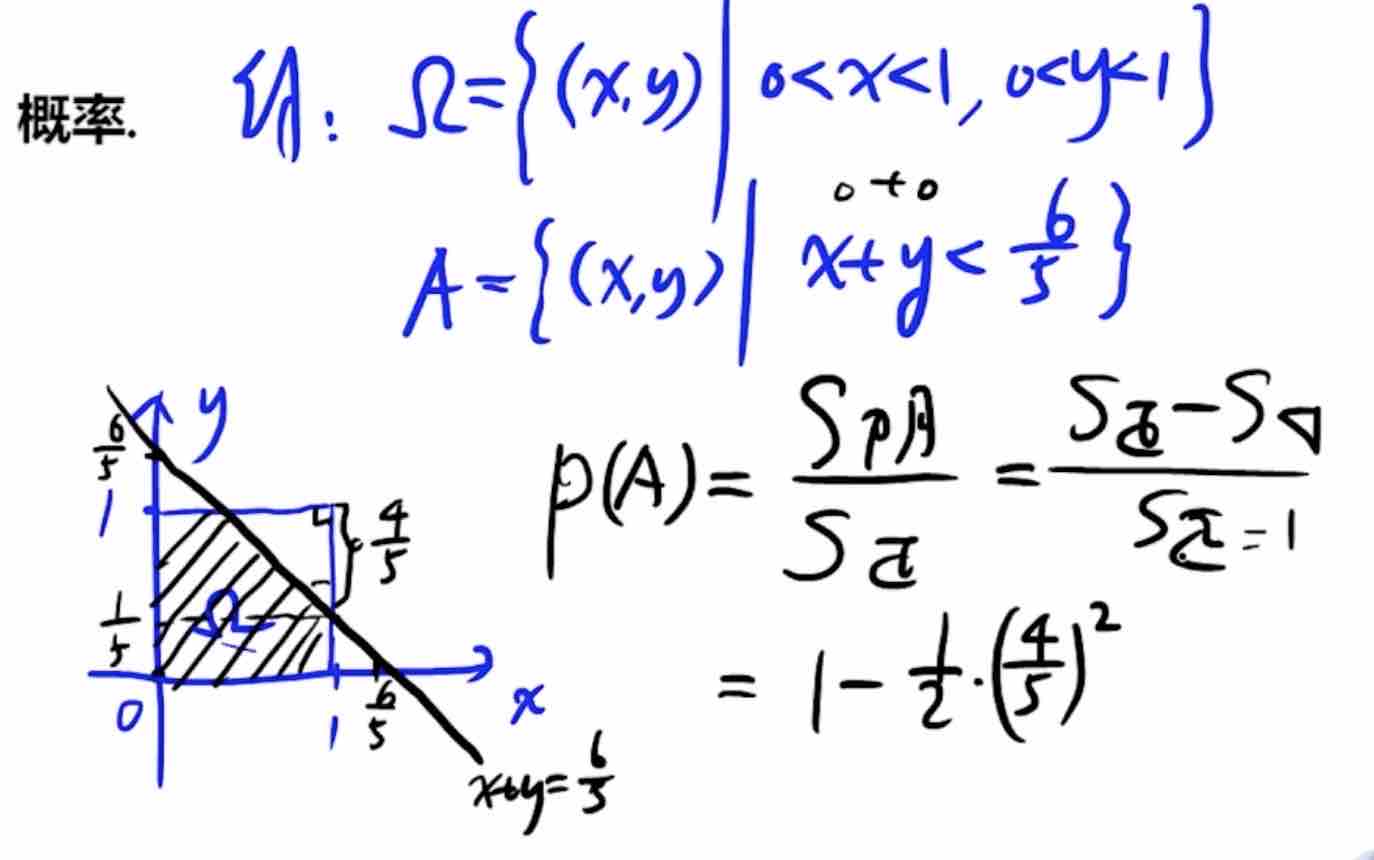 概率. 解: Ω={(x,y)|0<x<1, 0<y<1}
0+0
A={(x,y)|x+y<6/5}
y
6/5
1
4/5
1/5
Ω
0
1
6/5
x
x+y=6/5
P(A)=S阴/S正=(S正-S△)/(S正=1)
=1-1/2·(4/5)²